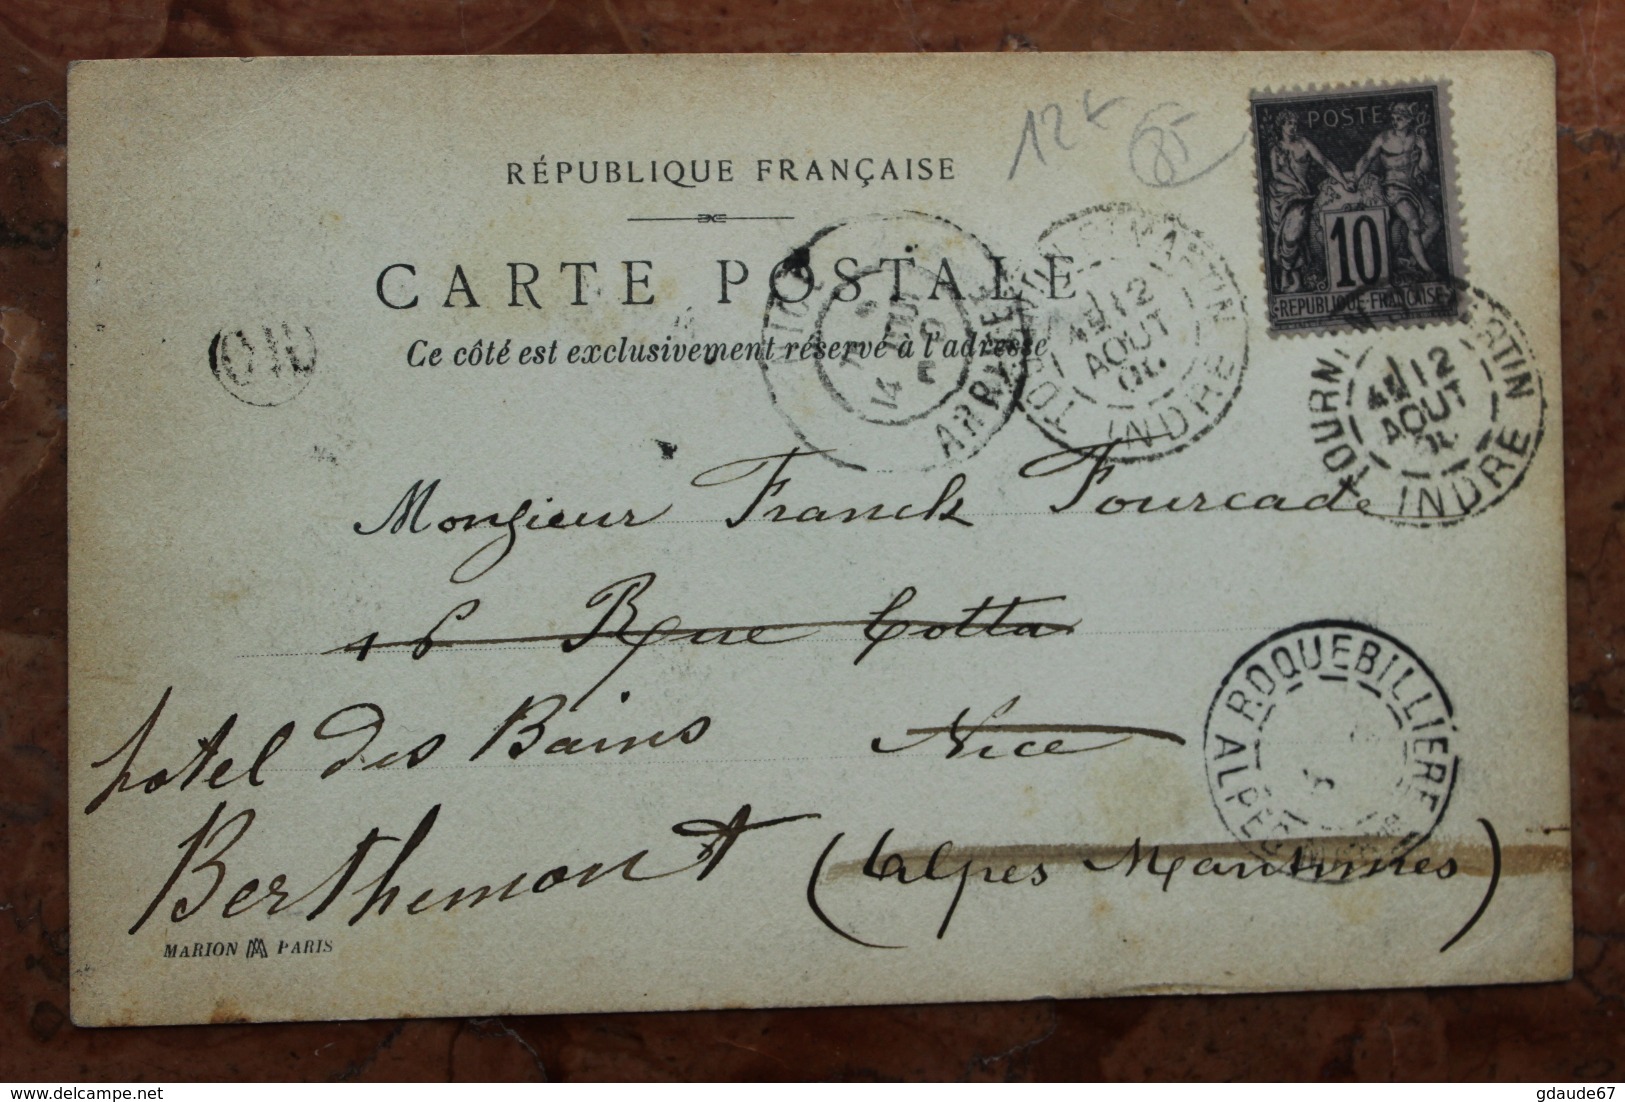 12 €
85
RÉPUBLIQUE FRANÇAISE
CARTE POSTALE
Ce côté est exclusivement réservé à l'adresse
POSTE
10
REPUBLIQUE FRANÇAISE
TOURNON ST MARTIN
12
AOUT
INDRE
TOURNON MARTIN
12
AOUT
INDRE
ARRIVEE
14
Monsieur Franck Fourcade
16 Rue Cotta
hotel des Bains Nice
Berthemont (Alpes Maritimes)
ROQUEBILLIERE
ALPES
MARION PARIS
delcampe.net
gdaude67